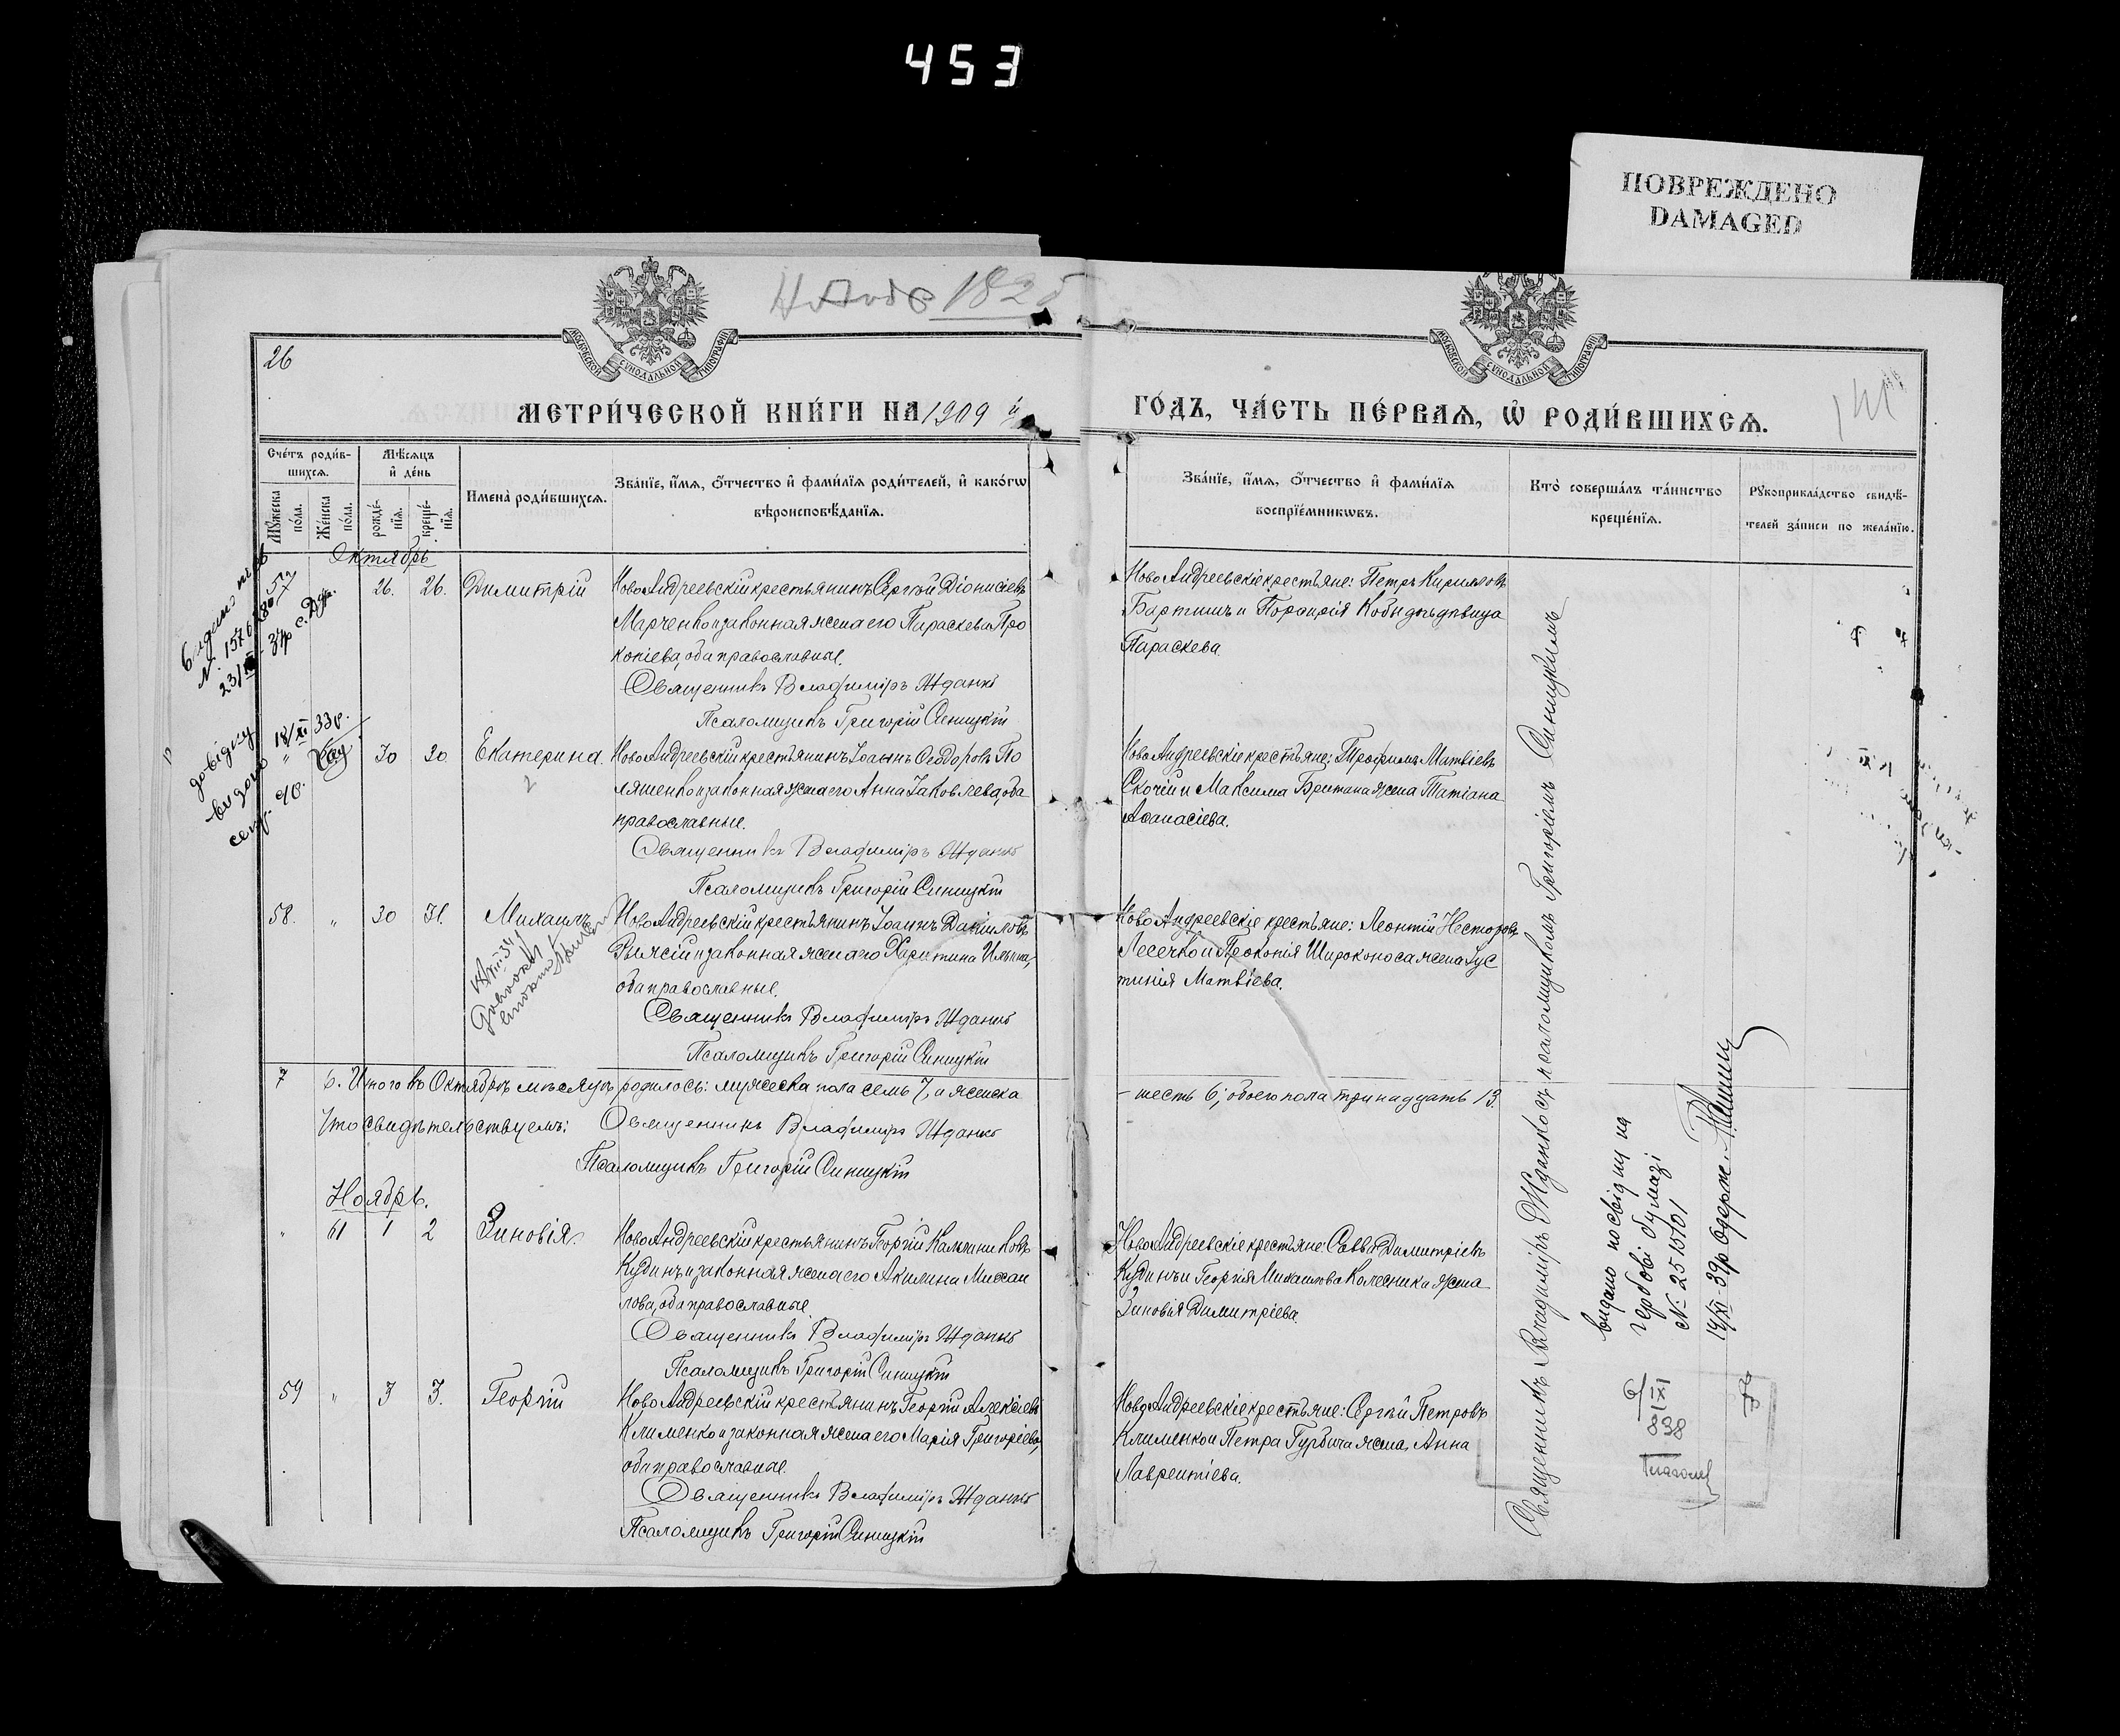 453
ПОВРЕЖДЕНО
DAMAGED
182
МОСКОВСКОЙ СѴНОДАЛЬНОЙ ТИПОГРАФІИ
МОСКОВСКОЙ СѴНОДАЛЬНОЙ ТИПОГРАФІИ
26
МЕТРИ́ЧЕСКОЙ КНИ́ГИ НА 1909 й
ГО́ДЪ, ЧА́СТЬ ПЕ́РВАѦ, Ѡ҆ РОДИ́ВШИХСѦ.
Сче́тъ роди́в-
шихсѧ.
Мѣ́сѧцъ
и҆ де́нь
Мꙋ́жеска
по́ла.
Же́нска
по́ла.
рожде́-
нїѧ.
креще́-
нїѧ.
Имена̀ роди́вшихсѧ.
Зва́нїе, и҆́мѧ, о҆́тчество и҆ фами́лїѧ роди́телей, и҆ како́гѡ
вѣроисповѣ́данїѧ.
Зва́нїе, и҆́мѧ, о҆́тчество и҆ фами́лїѧ
воспрїе́мникѡвъ.
Кто̀ соверша́лъ та́инство
креще́нїѧ.
Рꙋкоприкла́дство свидѣ́-
телей за́писи по жела́нїю.
Октябрь
57 26. 26. Димитрій
НовоАндреевскій крестьянинъ Сергѣй Діонисіевъ
Марченко и законная жена его Параскева Про
копіева, оба православные.
Священникъ Владиміръ Жданко
Псаломщикъ Григорій Синицкій
НовоАндреевскіе крестьяне: Петръ Кириловъ
Бартишъ и Порфирія Кобыды дѣвица
Параскева.
18/XI 33р.
довідку
видано
" 30 30 Екатерина.
НовоАндреевскій крестьянинъ Іоаннъ Ѳеодоровъ По
ляшенко и законная жена его Анна Іаковлева, оба
православные.
Священникъ Владиміръ Жданко
Псаломщикъ Григорій Синицкій
НовоАндреевскіе крестьяне: Трофимъ Матвіевъ
Скочій и Максима Британа жена Татіана
Аѳанасіева.
58. " 30 31. Михаилъ
НовоАндреевскій крестьянинъ Іоаннъ Даніиловъ
и законная жена его Харитина Ильина,
оба православные.
Священникъ Владиміръ Жданко
Псаломщикъ Григорій Синицкій
НовоАндреевскіе крестьяне: Леонтій Несторовъ
Лесечко и Прокопія Широконоса жена Іус
тинія Матвіева.
7 6. Итого въ Октябрѣ мѣсяцѣ родилось: мужеска пола семь 7, а женска
– шесть 6; обоего пола тринадцать 13.
Что свидѣтельствуемъ: Священникъ Владиміръ Жданко
Псаломщикъ Григорій Синицкій
Ноябрь.
" 61 1 2 Зиновія.
НовоАндреевскій крестьянинъ Георгій Каллиниковъ
Кудинъ и законная жена его Акилина Михаи
лова, оба православные.
Священникъ Владиміръ Жданко
Псаломщикъ Григорій Синицкій
НовоАндреевскіе крестьяне: Савва Димитріевъ
Кудинъ и Георгія Михаилова Колесника жена
Зиновія Димитріева.
59 " 3 3. Георгій
НовоАндреевскій крестьянинъ Георгій Алексіевъ
Клименко и законная жена его Марія Григоріева,
оба православные.
Священникъ Владиміръ Жданко
Псаломщикъ Григорій Синицкій
НовоАндреевскіе крестьяне: Сергѣй Петровъ
Клименко и Петра Гурбича жена Анна
Лаврентіева.
Священникъ Владиміръ Жданко съ псаломщикомъ Григоріемъ Синицкимъ
видано посвідку на
гербові бумазі
№ 2515101
14/XI-39р одерж.
6/IXI
838